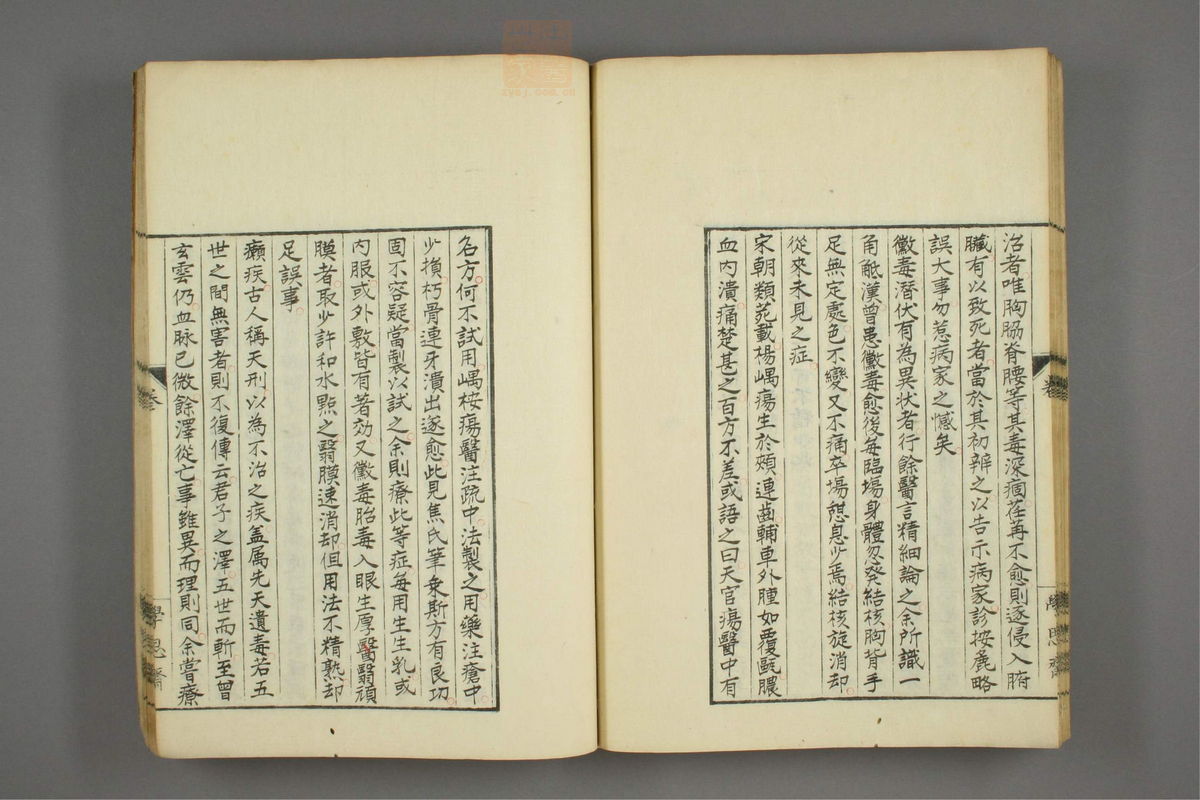 治者唯胸脇脊腰等其毒深痼荏苒不愈則逐侵入腑
臟有以致死者當於其初辨之以告示病家診按麁略
誤大事勿惹病家之憾矣
黴毒潛伏有為異状者行餘醫言精細論之余所識一
角觝漢曾患黴毒愈後每臨場身體忽発結核胸背手
足無定處色不變又不痛卒場憩息少焉結核旋消却
從來未見之症
宋朝類苑載楊嵎瘍生於頰連齒輔車外腫如覆甌膿
血內潰痛楚甚之百方不差或語之曰天官瘍醫中有
名方何不試用嵎桉瘍醫注疏中法製之用藥注瘡中
少損朽骨連牙潰出遂愈此見焦氏筆乘斯方有良功
固不容疑當製以試之余則療此等症每用生生乳或
内服或外敷皆有著効又黴毒胎毒入眼生厚醫翳頑
膜者取少許和水點之翳膜速消却但用法不精熟却
足誤事
癩疾古人稱天刑以為不治之疾盖属先天遺毒若五
世之間無害者則不復傳云君子之澤五世而斬至曾
玄雲仍血脉已微餘澤從亡事雖異而理則同余嘗療
學思齋
zysj.com.cn